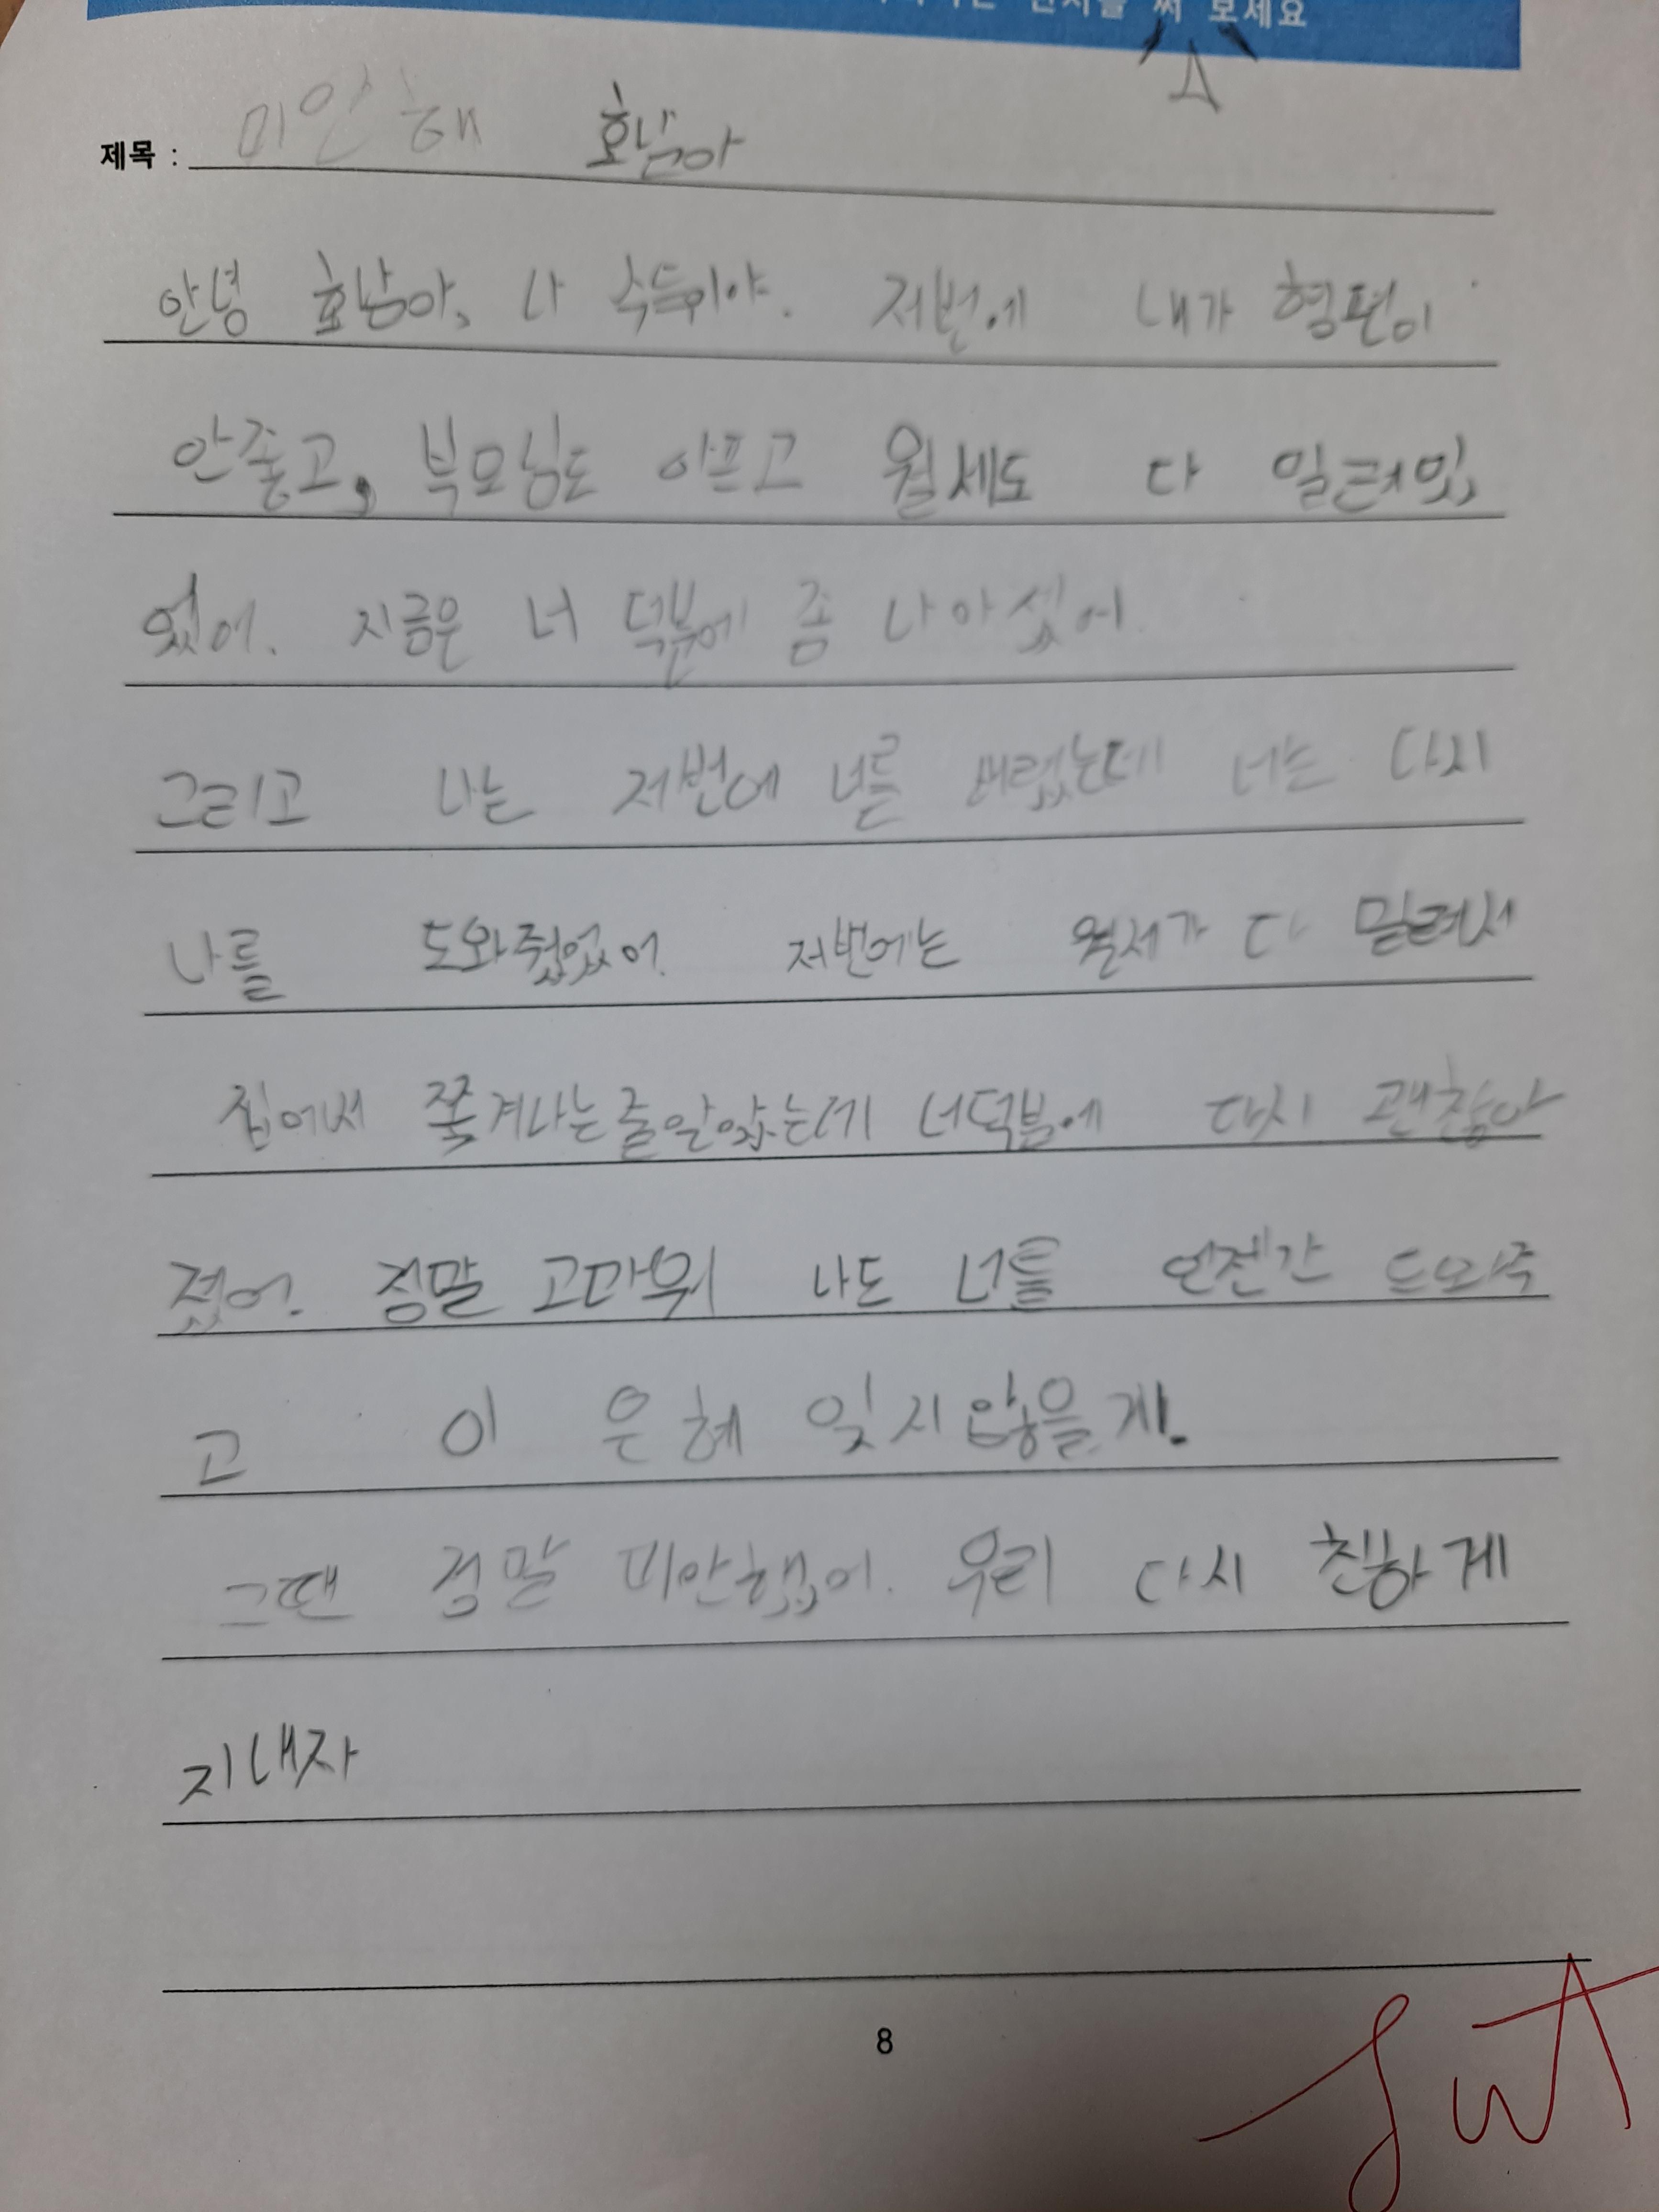 편지를 써 보세요
제목 : 미안해 효남아
안녕 효남아, 나 수득이야. 저번에 내가 형편이
안좋고, 부모님도 아프고 월세도 다 밀려있
었어. 지금은 너 덕분에 좀 나아졌어
그리고 나는 저번에 너를 버렸는데 너는 다시
나를 도와줬었어. 저번에는 월세가 다 밀려서
집에서 쫓겨나는줄알았는데 너덕분에 다시 괜찮아
졌어. 정말 고마워 나도 너를 언젠간 도와주
고 이 은혜 잊지않을게.
그땐 정말 미안했어. 우리 다시 친하게
지내자
8